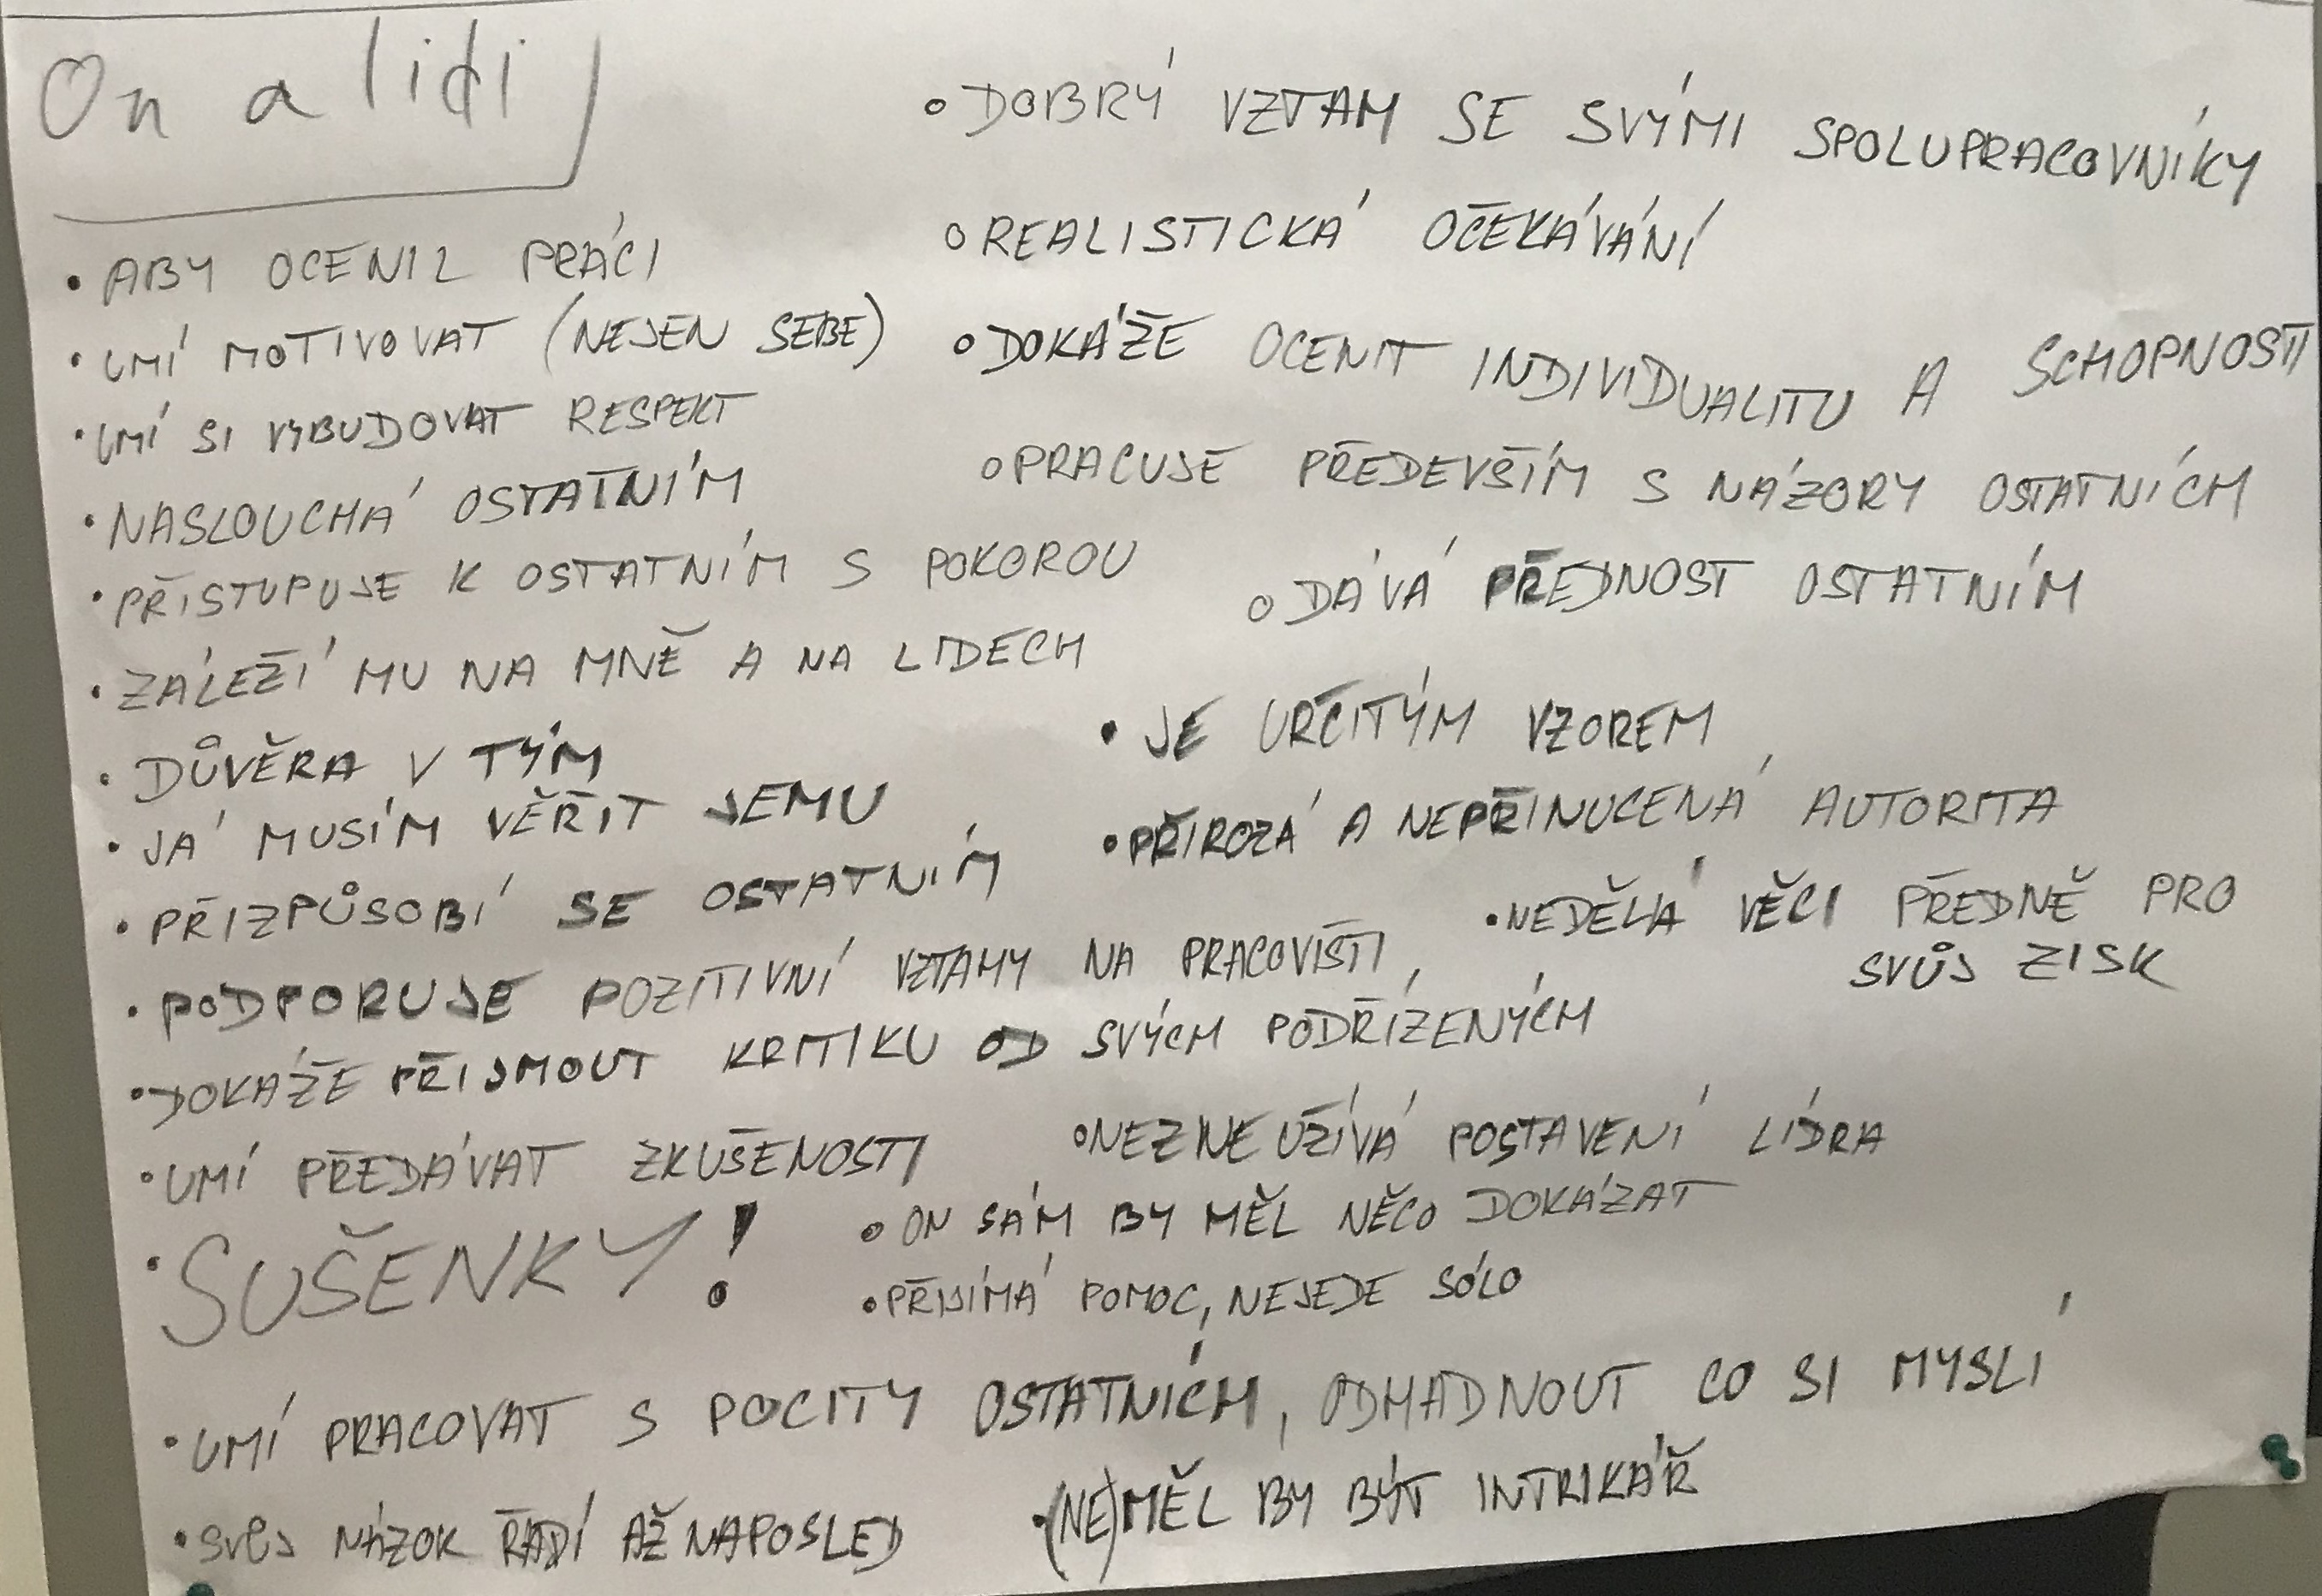 On a lidi
• ABY OCENIL PRÁCI
• UMÍ MOTIVOVAT (NEJEN SEBE)
• UMÍ SI VYBUDOVAT RESPEKT
• NASLOUCHÁ OSTATNÍM
• PŘISTUPUJE K OSTATNÍM S POKOROU
• ZÁLEŽÍ MU NA MNĚ A NA LIDECH
• DŮVĚRA V TÝM
• JÁ MUSÍM VĚŘIT JEMU
• PŘIZPŮSOBÍ SE OSTATNÍM
• PODPORUJE POZITIVNÍ VZTAHY NA PRACOVIŠTI,
• DOKÁŽE PŘIJMOUT KRITIKU OD SVÝCH PODŘÍZENÝCH
• UMÍ PŘEDÁVAT ZKUŠENOSTI
• SUŠENKY!
• DOBRÝ VZTAH SE SVÝMI SPOLUPRACOVNÍKY
• REALISTICKÁ OČEKÁVÁNÍ
• DOKÁŽE OCENIT INDIVIDUALITU A SCHOPNOSTI
• PRACUJE PŘEDEVŠÍM S NÁZORY OSTATNÍCH
• DÁVÁ PŘEDNOST OSTATNÍM
• JE URČITÝM VZOREM
• PŘIROZÁ A NEPŘINUCENÁ AUTORITA
• NEDĚLÁ VĚCI PŘEDNĚ PRO
SVŮJ ZISK
• NEZNEUŽÍVÁ POSTAVENÍ LÍDRA
• ON SÁM BY MĚL NĚCO DOKÁZAT
• PŘIJÍMÁ POMOC, NEJEDE SÓLO
• UMÍ PRACOVAT S POCITY OSTATNÍCH, ODHADNOUT CO SI MYSLÍ
• SVŮJ NÁZOR ŘADÍ AŽ NAPOSLED
• (NE)MĚL BY BÝT INTRIKÁŘ